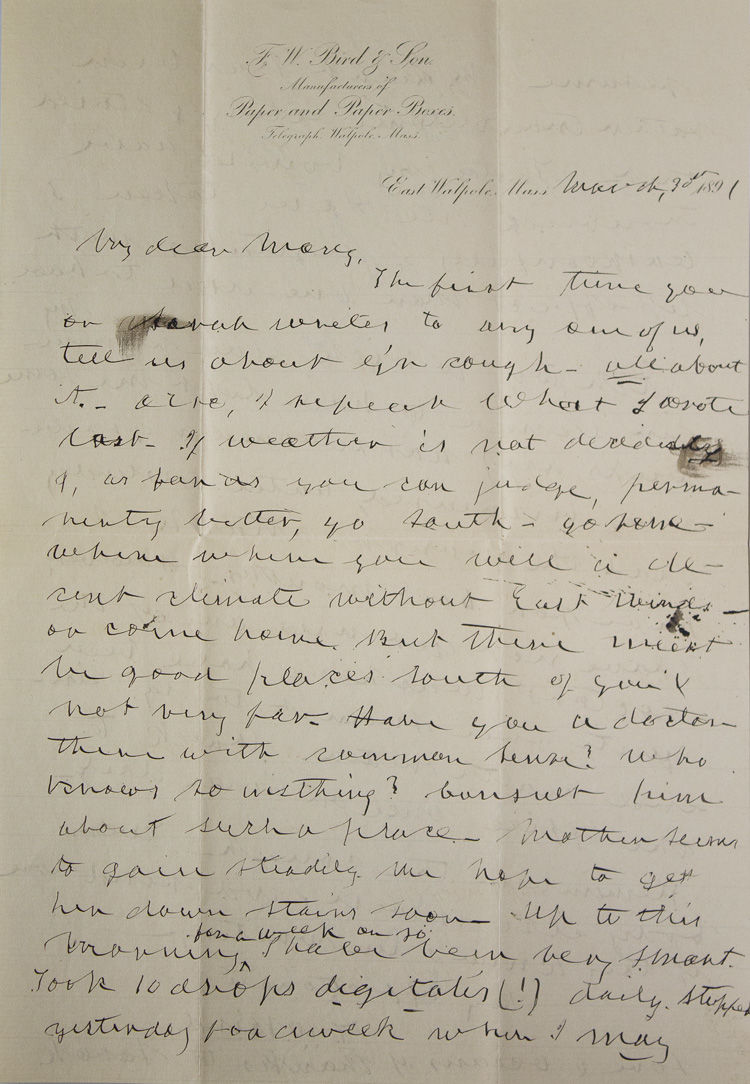 F. W. Bird & Son.
Manufacturers of
Paper and Paper Boxes.
Telegraph, Walpole, Mass.
East Walpole, Mass. March, 3d 1891
My dear Mary,
The first time you
or Sarah writes to any one of us,
tell us about cough – all about
it. – also, I repeat what I wrote
last – If weather is not decidedly
&, as far as you can judge, perma-
nently better, go South – go some-
where where you will a de-
cent climate without East winds –
or come home. But there must
be good places south of you &
not very far – Have you a doctor
there with common sense? who
knows something? Consult him
about such a place – Mother seems
to gain steadily. We hope to get
her down stairs soon – Up to this
morning, for a week or so I have been very smart.
Took 10 drops digitalis (!) daily. Stopped
yesterday for a week when I may